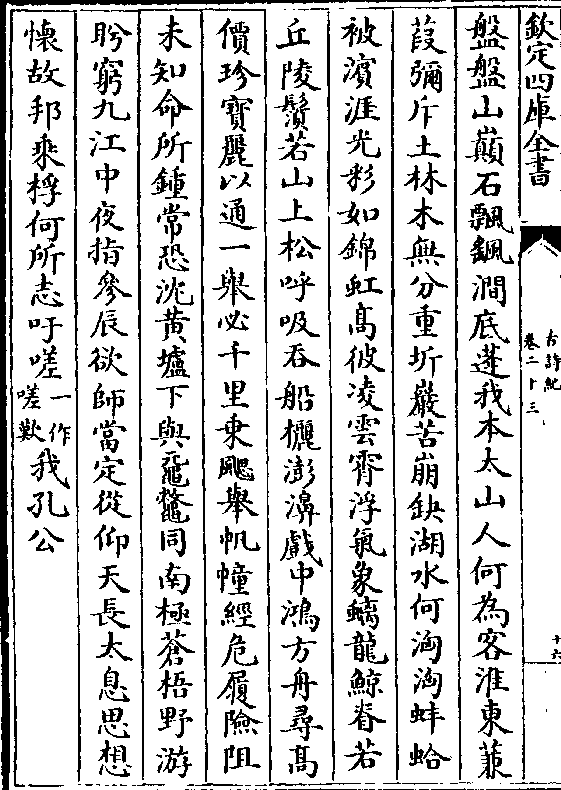 欽定四庫全書
古詩紀
卷二十三
十六
盤盤山巔石飄飖澗底蓬我本太山人何為客淮東蒹
葭彌斥土林木無分重圻巖苦崩缺湖水何洶洶蚌蛤
被濱涯光彩如錦虹高彼凌雲霄浮氣象螭龍鯨脊若
丘陵鬚若山上松呼吸吞船欐澎濞戲中鴻方舟尋高
價珍寶麗以通一舉必千里乗颸舉帆幢經危履險阻
未知命所鍾常恐沈黄壚下與黿鼈同南極蒼梧野游
盻窮九江中夜指參辰欲師當定從仰天長太息思想
懐故邦乗桴何所志吁嗟一作嗟歎我孔公